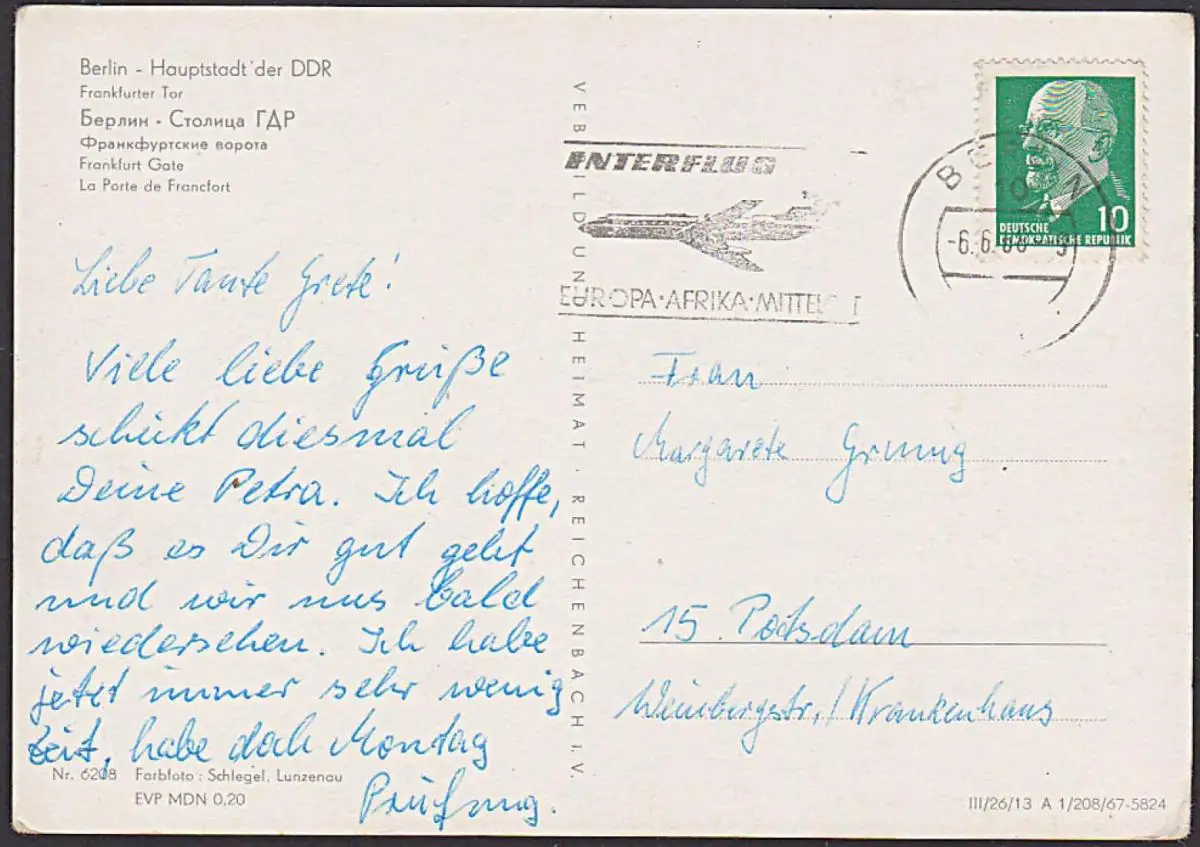 Berlin - Hauptstadt der DDR
Frankfurter Tor
Берлин - Столица ГДР
Франкфуртские ворота
Frankfurt Gate
La Porte de Francfort
Liebe Tante Grete!
Viele liebe Grüße
schickt diesmal
Deine Petra. Ich hoffe,
daß es Dir gut geht
und wir uns bald
wiedersehen. Ich habe
jetzt immer sehr wenig
Zeit, habe doch Montag
Prüfung.
Nr. 6208 Farbfoto: Schlegel, Lunzenau
EVP MDN 0,20
VEB BILD UND HEIMAT · REICHENBACH I. V.
INTERFLUG
EUROPA·AFRIKA·MITTEL
BERLIN
10
-6.6.
10
DEUTSCHE
DEMOKRATISCHE REPUBLIK
Frau
Margarete
15 Potsdam
Weinbergstr./Krankenhaus
III/26/13 A 1/208/67-5824